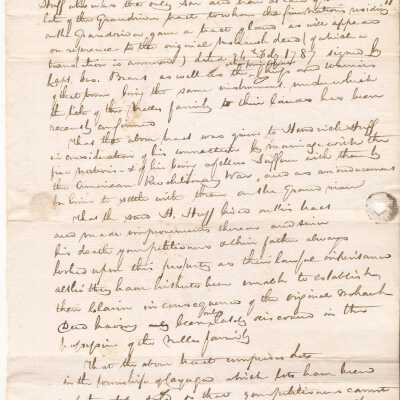 Huff who was the only son and heir at law of
late of the Grand river part to whom the five Nations residing
on the Grand river gave a tract of land as will appear
on reference to the original Mohawk deed (of which a
translation is annexed) dated Feby 1787 signed by
Capt. Jos. Brant as well as the Chiefs and Warriors
of that being the same instrument under which
the title of the Nelles family to their lands has been
recently confirmed
That the above tract was given to Hendrick Huff
in consideration of his connection by marriage with the
five nations & of his being a fellow sufferer with them by
the American Revolutionary War, and as an inducement
to him to settle with them on the Grand river
That the said H. Huff lived on this tract
and made improvements thereon and since
his death your petitioners & their father always
looked upon this property as their lawful inheritance
altho they have hitherto been unable to establish
their Claim in consequence of the original Mohawk
Deed having only been lately discovered in the
possession of the Nelles family
That the above tract comprises lots
in the township of Cayuga which lots have been
so that your petitioners cannot